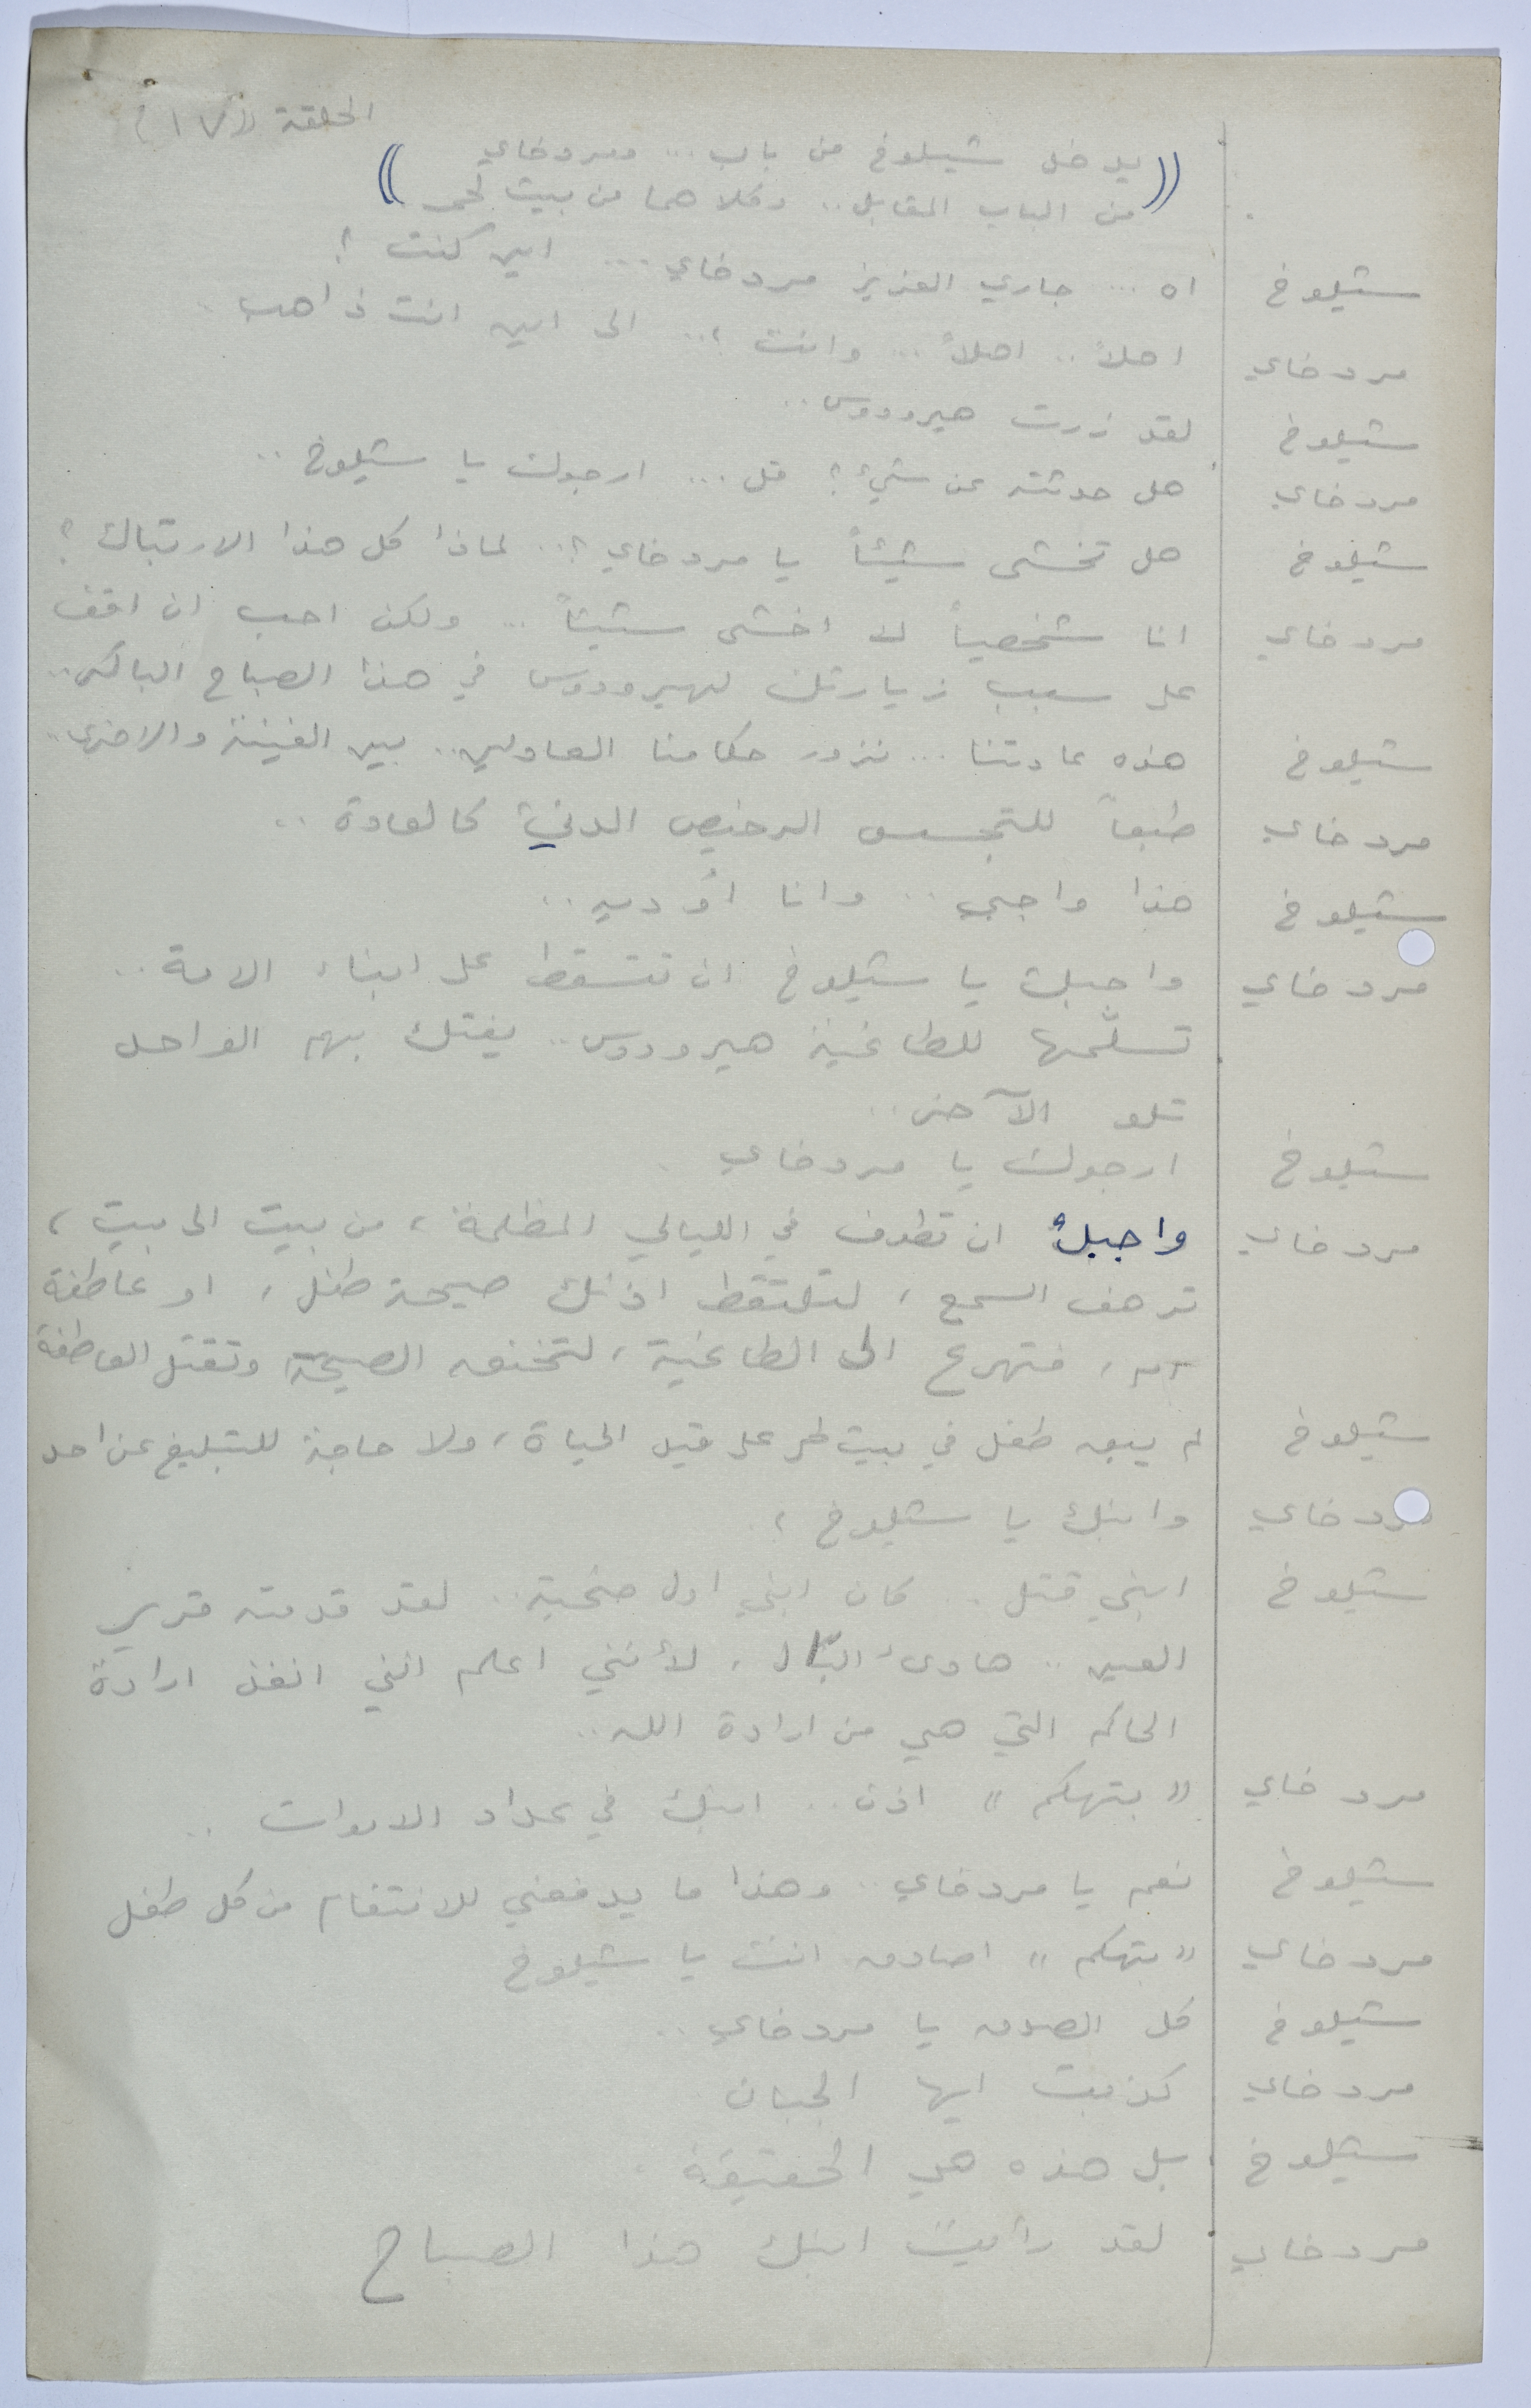 الحلقة (١٧)
((يدخل شيلوخ من باب ... ومردخاي
من الباب المقابل .. وكلاهما من بيت لحم))
شيلوخ اه ... جاري العزيز مردخاي ... اين كنت ؟
مردخاي اهلاً .. اهلاً ... وانت ؟.. الى اين انت ذاهب .
شيلوخ لقد زرت هيرودوس ..
مردخاي هل حدثته عن شيء ؟ قل ... ارجوك يا شيلوخ ..
شيلوخ هل تخشى شيئاً يا مردخاي ؟.. لماذا كل هذا الارتباك ؟
مردخاي انا شخصياً لا اخشى شيئاً ... ولكن احب ان اقف
على سبب زيارتك لهيرودوس في هذا الصباح الباكر ..
شيلوخ هذه عادتنا ... نزور حكامنا العادلين .. بين الفينة والاخرى ..
مردخاي طبعاً للتجسس الرخيص الدنيء كالعادة ..
شيلوخ هذا واجبي .. وانا أؤديه ..
مردخاي واجبك يا شيلوخ ان تتسقط على ابناء الامة ..
تسلّمها للطاغية هيرودوس .. يفتك بهم الواحد
تلو الآخر ..
شيلوخ ارجوك يا مردخاي .
مردخاي واجبك ان تطوف في الليالي المظلمة ، من بيت الى بيت ،
ترهف السمع ، لتلتقط اذنك صيحة طفل ، او عاطفة
ام ، فتهرع الى الطاغية ، لتخنق الصيحة وتقتل العاطفة
شيلوخ لم يبق طفل في بيت لحم على قيد الحياة ، ولا حاجة للتبليغ عن احد
مردخاي وابنك يا شيلوخ ؟
شيلوخ ابني قتل .. كان ابني اول ضحية .. لقد قدمته قرير
العين .. هادىء البال ، لأنني اعلم انني انفذ ارادة
الحاكم التي هي من ارادة الله ..
مردخاي "بتهكم" اذن .. ابنك في عداد الاموات ..
شيلوخ نعم يا مردخاي .. وهذا ما يدفعني للانتقام من كل طفل
مردخاي "بتهكم" اصادق انت يا شيلوخ
شيلوخ كل الصدق يا مردخاي ..
مردخاي كذبت ايها الجبان
شيلوخ بل هذه هي الحقيقة .
مردخاي لقد رأيت ابنك هذا الصباح